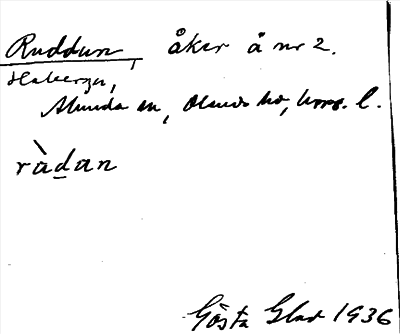 Ruddun, åker å nr 2.
Haberga,
Alunda sn, Olands hd, Upps. l.
ràdan
Gösta Glad 1936